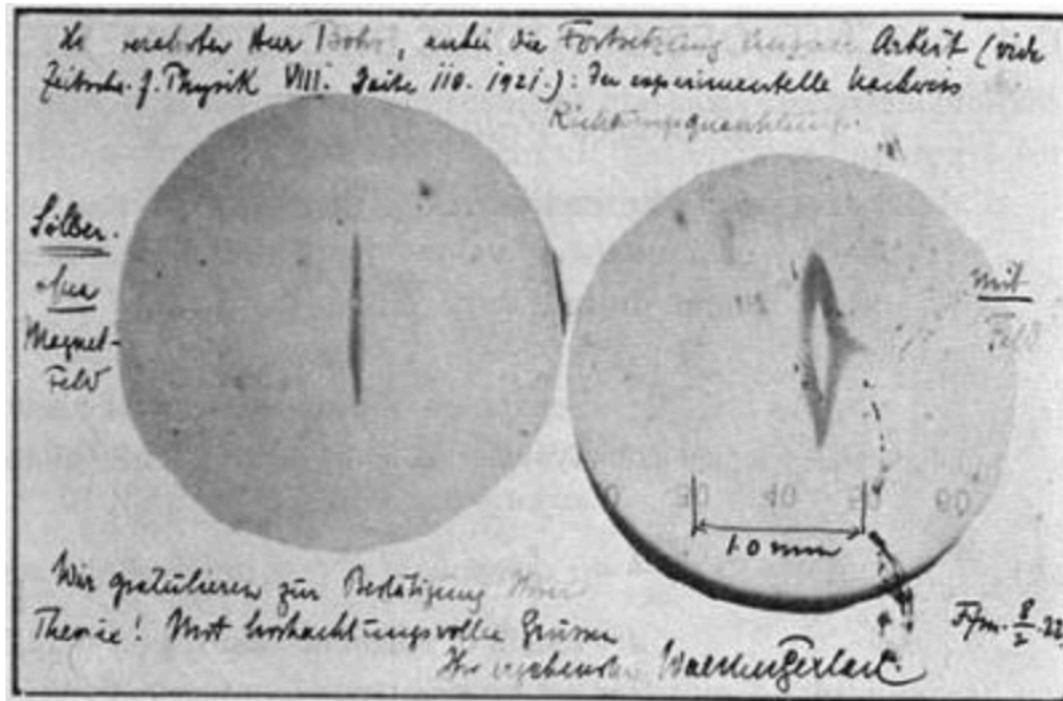 verehrter Herr Bohr, anbei die Fortsetzung unserer Arbeit (vide
Zeitschr. f. Physik VIII. Seite 110. 1921.): Der experimentelle Nachweis
Richtungsquantelung.
Silber.
ohne
Magnet-
Feld
mit
Feld
1.0 mm
Wir gratulieren zur Bestätigung Ihrer
Theorie! Mit hochachtungsvollen Grüssen
Ihr ergebenster Walther Gerlach.
Ffm. 8/2.22.